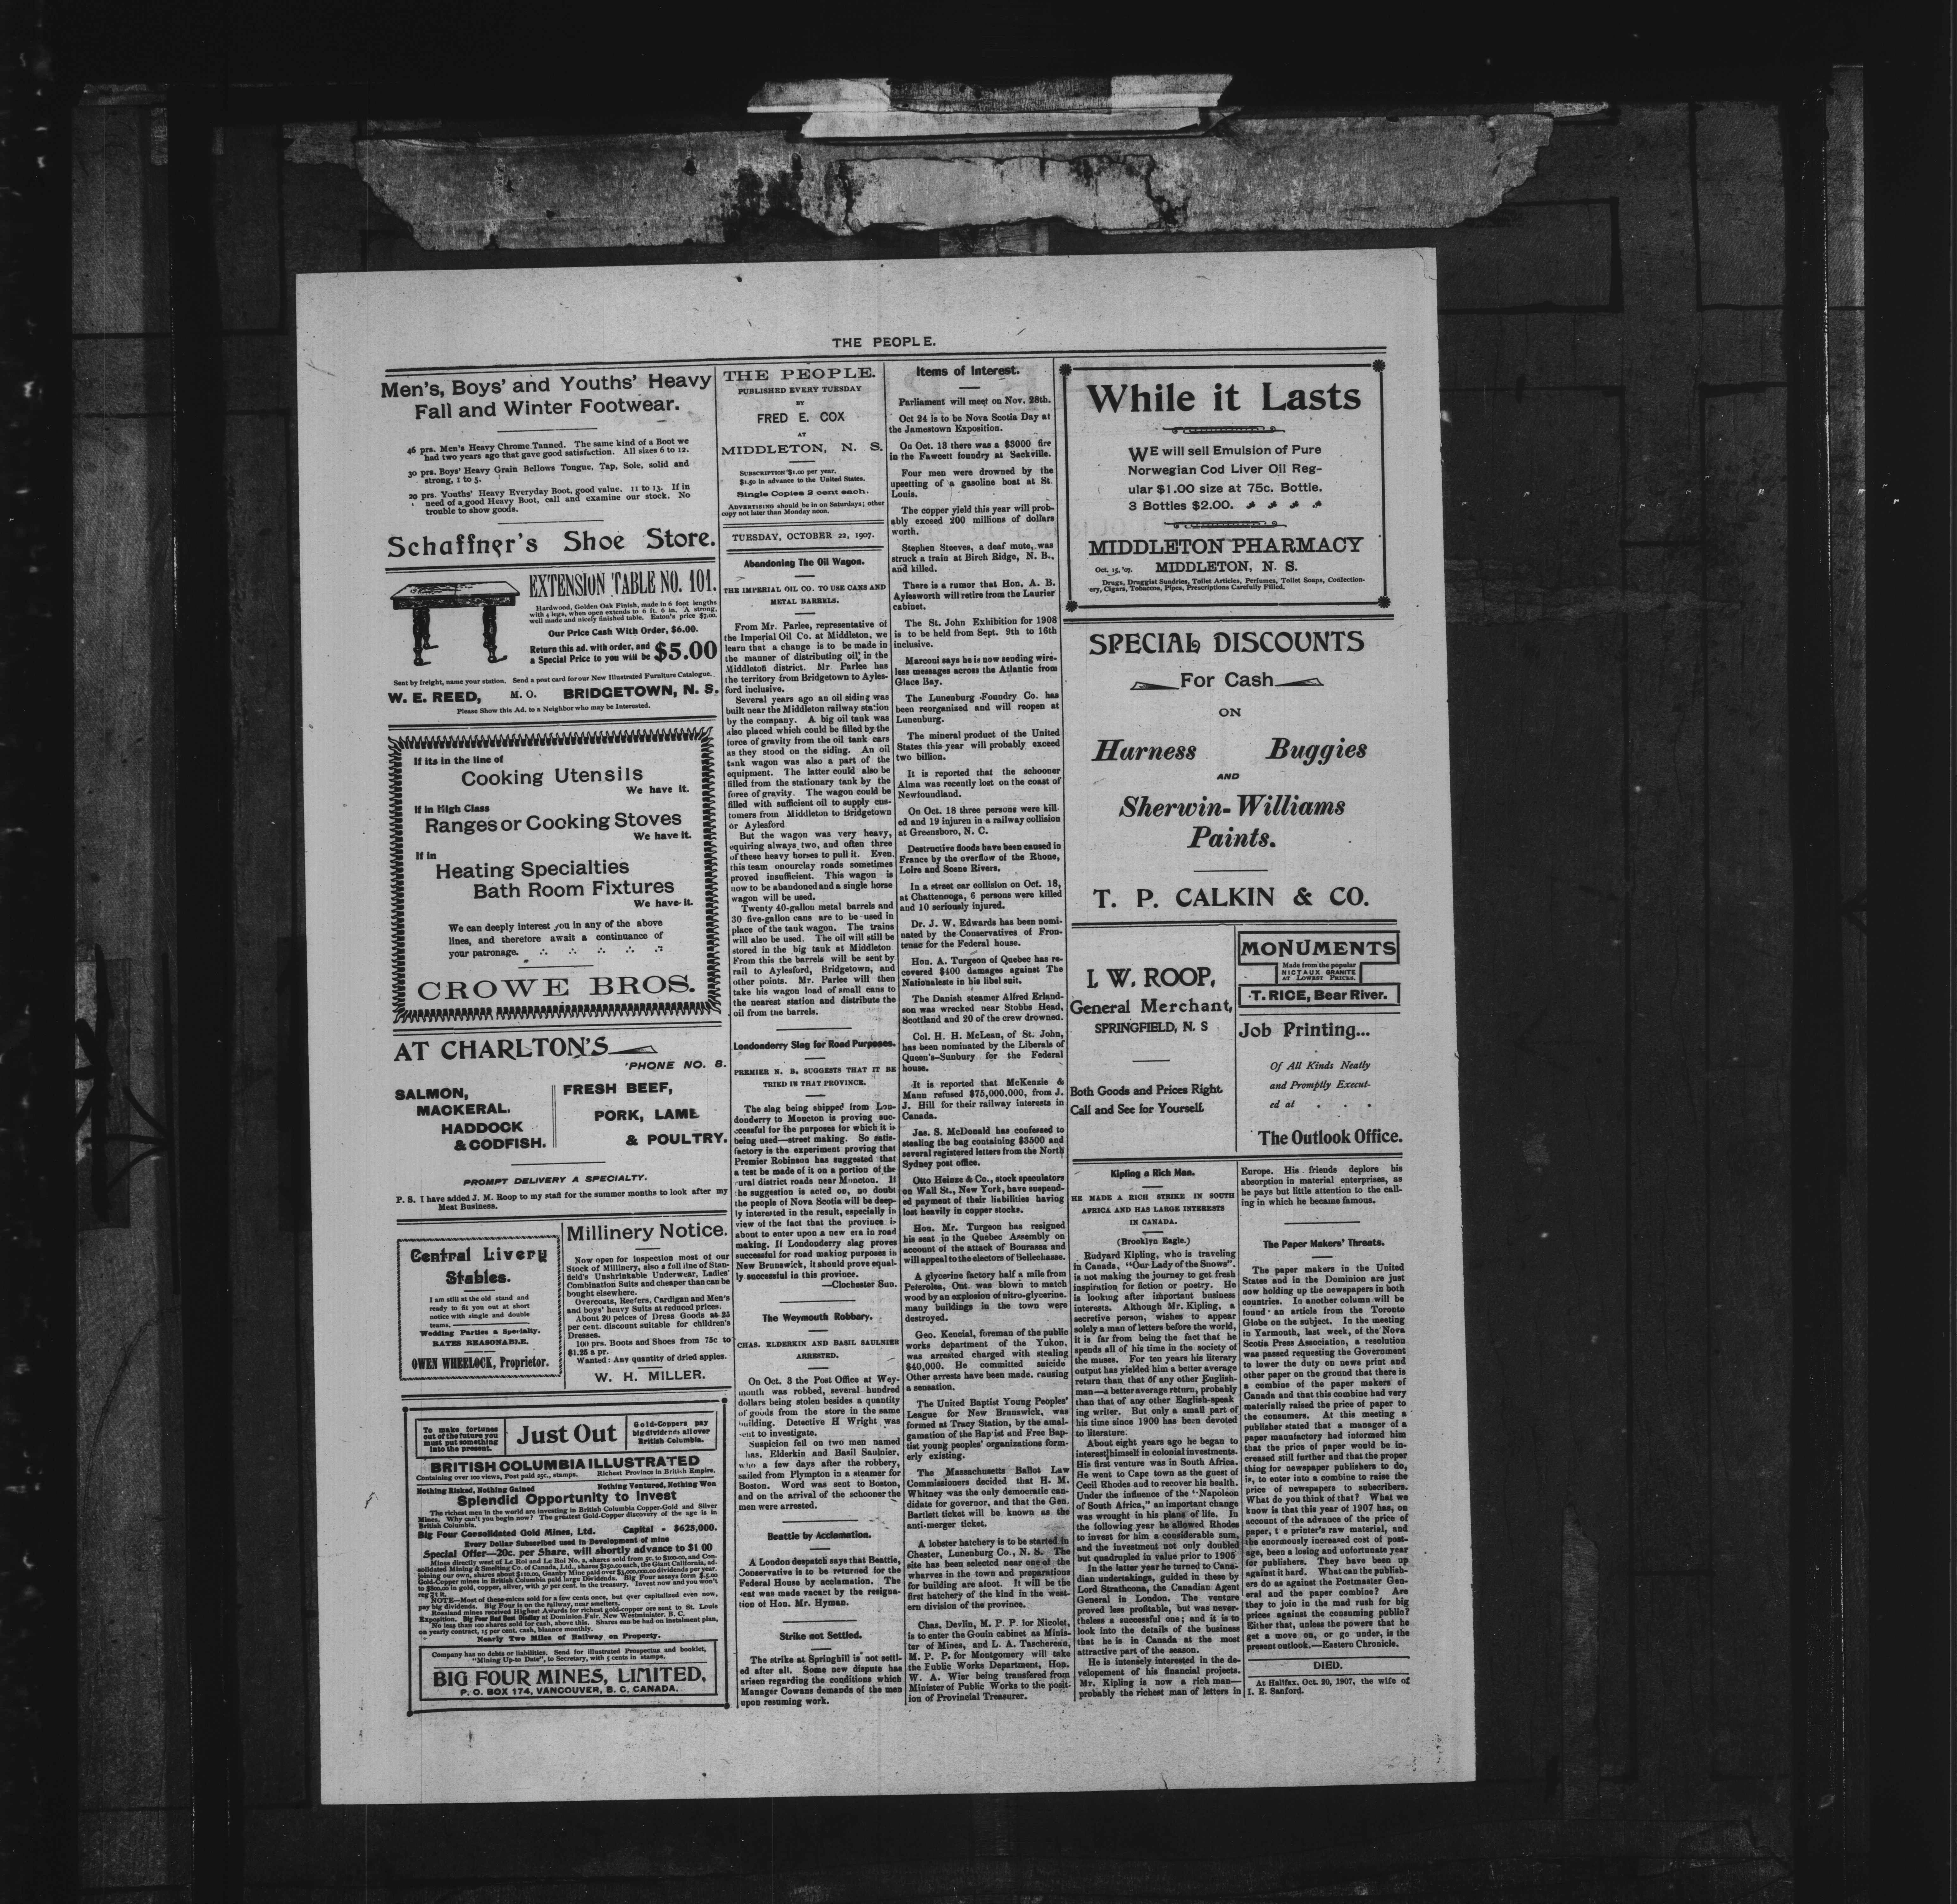 THE PEOPLE.
Men's, Boys' and Youths' Heavy
Fall and Winter Footwear.
46 prs. Men's Heavy Chrome Tanned. The same kind of a Boot we
had two years ago that gave good satisfaction. All sizes 6 to 12.
30 prs. Boys' Heavy Grain Bellows Tongue, Tap, Sole, solid and
strong, 1 to 5.
20 prs. Youths' Heavy Everyday Boot, good value. 11 to 13. If in
need of a good Heavy Boot, call and examine our stock. No
trouble to show goods.
Schaffner's Shoe Store.
EXTENSION TABLE NO. 101.
Hardwood, Golden Oak Finish, made in 6 foot lengths
with 4 legs, when open extends to 6 ft. 6 in. A strong,
well made and nicely finished table. Eaton's price $7.00.
Our Price Cash With Order, $6.00.
Return this ad. with order, and
a Special Price to you will be $5.00
Sent by freight, name your station. Send a post card for our New Illustrated Furniture Catalogue.
W. E. REED, M. O. BRIDGETOWN, N. S.
Please Show this Ad. to a Neighbor who may be Interested.
If its in the line of
Cooking Utensils
We have it.
If in High Class
Ranges or Cooking Stoves
We have it.
If in
Heating Specialties
Bath Room Fixtures
We have it.
We can deeply interest you in any of the above
lines, and therefore await a continuance of
your patronage.
CROWE BROS.
AT CHARLTON'S
'PHONE NO. 8.
SALMON,
MACKERAL.
HADDOCK
& CODFISH.
FRESH BEEF,
PORK, LAMB
& POULTRY.
PROMPT DELIVERY A SPECIALTY.
P. S. I have added J. M. Roop to my staff for the summer months to look after my
Meat Business.
Central Livery
Stables.
I am still at the old stand and
ready to fit you out at short
notice with single and double
teams.
Wedding Parties a Specialty.
RATES REASONABLE.
OWEN WHEELOCK, Proprietor.
Millinery Notice.
Now open for inspection most of our
Stock of Millinery, also a full line of Stan-
field's Unshrinkable Underwear, Ladies'
Combination Suits and cheaper than can be
bought elsewhere.
Overcoats, Reefers, Cardigan and Men's
and boys' heavy Suits at reduced prices.
About 20 peices of Dress Goods at 25
per cent. discount suitable for children's
Dresses.
100 prs. Boots and Shoes from 75c to
$1.25 a pr.
Wanted: Any quantity of dried apples.
W. H. MILLER.
To make fortunes
out of the future you
must put something
into the present.
Just Out
Gold-Coppers pay
big dividends all over
British Columbia.
BRITISH COLUMBIA ILLUSTRATED
Containing over 100 views, Post paid 25c., stamps. Richest Province in British Empire.
Nothing Risked, Nothing Gained Nothing Ventured, Nothing Won
Splendid Opportunity to Invest
The richest men in the world are investing in British Columbia Copper-Gold and Silver
Mines. Why can't you begin now? The greatest Gold-Copper discovery of the age is in
British Columbia.
Big Four Consolidated Gold Mines, Ltd. Capital - $625,000.
Every Dollar Subscribed used in Development of mine
Special Offer—20c. per Share, will shortly advance to $1 00
Mines directly west of Le Roi and Le Roi No. 2, shares sold from 5c. to $100.00, and Con-
solidated Mining & Smelting Co. of Canada, Ltd., shares $150.00 each, the Giant California, ad-
joining our own, shares about $110.00, Granby Mine paid over $3,000,000.00 dividends per year.
Gold-Copper mines in British Columbia paid large Dividends. Big Four assays form $5.00
to $800.00 in gold, copper, silver, with 30 per cent. in the treasury. Invest now and you won't
NOTE—Most of these mices sold for a few cents once, but over capitalised even now,
pay big dividends. Big Four is on the railway, near smelters.
Rossland mines received Highest Awards for richest gold-copper ore sent to St. Louis
Exposition. Big Four Had Best Display at Dominion Fair, New Westminister, B. C.
No less than 100 shares sold for cash, above this. Shares can be had on instalment plan,
on yearly contract, 15 per cent. cash, blaance monthly.
Nearly Two Miles of Railway on Property.
Company has no debts or liabilities. Send for Illustrated Prospectus and booklet,
"Mining Up-to Date", to Secretary, with 5 cents in stamps.
BIG FOUR MINES, LIMITED,
P. O. BOX 174, VANCOUVER, B. C. CANADA.
THE PEOPLE.
PUBLISHED EVERY TUESDAY
BY
FRED E. COX
AT
MIDDLETON, N. S.
SUBSCRIPTION $1.00 per year.
$1.50 in advance to the United States.
Single Copies 2 cent each.
ADVERTISING should be in on Saturdays; other
copy not later than Monday noon.
TUESDAY, OCTOBER 22, 1907.
Abandoning The Oil Wagon.
THE IMPERIAL OIL CO. TO USE CANS AND
METAL BARRELS.
From Mr. Parlee, representative of
the Imperial Oil Co. at Middleton, we
learn that a change is to be made in
the manner of distributing oil, in the
Middleton district. Mr Parlee has
the territory from Bridgetown to Ayles-
ford inclusive.
Several years ago an oil siding was
built near the Middleton railway station
by the company. A big oil tank was
also placed which could be filled by the
force of gravity from the oil tank cars
as they stood on the siding. An oil
tank wagon was also a part of the
equipment. The latter could also be
filled from the stationary tank by the
force of gravity. The wagon could be
filled with sufficient oil to supply cus-
tomers from Middleton to Bridgetown
or Aylesford
But the wagon was very heavy,
equiring always two, and often three
of these heavy horses to pull it. Even
this team onourclay roads sometimes
proved insufficient. This wagon is
now to be abandoned and a single horse
wagon will be used.
Twenty 40-gallon metal barrels and
30 five-gallon cans are to be used in
place of the tank wagon. The trains
will also be used. The oil will still be
stored in the big tank at Middleton
From this the barrels will be sent by
rail to Aylesford, Bridgetown, and
other points. Mr. Parlee will then
take his wagon load of small cans to
the nearest station and distribute the
oil from the barrels.
Londonderry Slag for Road Purposes.
PREMIER N. B. SUGGESTS THAT IT BE
TRIED IN THAT PROVINCE.
The slag being shipped from Lon-
donderry to Moncton is proving suc-
cessful for the purposes for which it is
being used—street making. So satis-
factory is the experiment proving that
Premier Robinson has suggested that
a test be made of it on a portion of the
rural district roads near Moncton. If
the suggestion is acted on, no doubt
the people of Nova Scotia will be deep-
ly interested in the result, especially in
view of the fact that the province is
about to enter upon a new era in road
making. If Londonderry slag proves
successful for road making purposes in
New Brunswick, it should prove equal-
ly successful in this province.
—Clochester Sun.
The Weymouth Robbary.
CHAS. ELDERKIN AND BASIL SAULNIER
ARRESTED.
On Oct. 3 the Post Office at Wey-
mouth was robbed, several hundred
dollars being stolen besides a quantity
of goods from the store in the same
building. Detective H Wright was
sent to investigate.
Suspicion fell on two men named
has. Elderkin and Basil Saulnier,
who a few days after the robbery,
sailed from Plympton in a steamer for
Boston. Word was sent to Boston,
and on the arrival of the schooner the
men were arrested.
Beattie by Acclamation.
A London despatch says that Beattie,
Conservative is to be returned for the
Federal House by acclamation. The
seat was made vacant by the resigna-
tion of Hon. Mr. Hyman.
Strike not Settled.
The strike at Springhill is not settl-
ed after all. Some new dispute has
arisen regarding the conditions which
Manager Cowans demands of the men
upon resuming work.
Items of Interest.
Parliament will meet on Nov. 28th.
Oct 24 is to be Nova Scotia Day at
the Jamestown Exposition.
On Oct. 13 there was a $3000 fire
in the Fawcett foundry at Sackville.
Four men were drowned by the
upsetting of a gasoline boat at St.
Louis.
The copper yield this year will prob-
ably exceed 200 millions of dollars
worth.
Stephen Steeves, a deaf mute, was
struck a train at Birch Ridge, N. B.,
and killed.
There is a rumor that Hon. A. B.
Aylesworth will retire from the Laurier
cabinet.
The St. John Exhibition for 1908
is to be held from Sept. 9th to 16th
inclusive.
Marconi says he is now sending wire-
less messages across the Atlantic from
Glace Bay.
The Lunenburg Foundry Co. has
been reorganized and will reopen at
Lunenburg.
The mineral product of the United
States this year will probably exceed
two billion.
It is reported that the schooner
Alma was recently lost on the coast of
Newfoundland.
On Oct. 18 three persons were kill-
ed and 19 injuren in a railway collision
at Greensboro, N. C.
Destructive floods have been caused in
France by the overflow of the Rhone,
Loire and Scene Rivers.
In a street car collision on Oct. 18,
at Chattenooga, 6 persons were killed
and 10 seriously injured.
Dr. J. W. Edwards has been nomi-
nated by the Conservatives of Fron-
tenac for the Federal house.
Hon. A. Turgeon of Quebec has re-
covered $400 damages against The
Nationaleste in his libel suit.
The Danish steamer Alfred Erland-
son was wrecked near Stobbs Head,
Scottland and 20 of the crew drowned.
Col. H. H. McLean, of St. John,
has been nominated by the Liberals of
Queen's-Sunbury for the Federal
house.
It is reported that McKenzie &
Mann refused $75,000,000, from J.
J. Hill for their railway interests in
Canada.
Jas. S. McDonald has confessed to
stealing the bag containing $3500 and
several registered letters from the North
Sydney post office.
Otto Heinze & Co., stock speculators
on Wall St., New York, have suspend-
ed payment of their liabilities having
lost heavily in copper stocks.
Hon. Mr. Turgeon has resigned
his seat in the Quebec Assembly on
account of the attack of Bourassa and
will appeal to the electors of Bellechasse.
A glycerine factory half a mile from
Peterolea, Ont. was blown to match
wood by an explosion of nitro-glycerine.
many buildings in the town were
destroyed.
Geo. Kencial, foreman of the public
works department of the Yukon,
was arrested charged with stealing
$40,000. He committed suicide
Other arrests have been made. causing
a sensation.
The United Baptist Young Peoples'
League for New Brunswick, was
formed at Tracy Station, by the amal-
gamation of the Bap ist and Free Bap-
tist young peoples' organizations form-
erly existing.
The Massachusetts Ballot Law
Commissioners decided that H. M.
Whitney was the only democratic can-
didate for governor, and that the Gen.
Bartlett ticket will be known as the
anti-merger ticket.
A lobster hatchery is to be started in
Chester, Lunenburg Co., N. S. The
site has been selected near one of the
wharves in the town and preparations
for building are afoot. It will be the
first hatchery of the kind in the west-
ern division of the province.
Chas. Devlin, M. P. P. for Nicolet,
is to enter the Gouin cabinet as Minis-
ter of Mines, and L. A. Taschereau,
M. P. P. for Montgomery will take
the Public Works Department, Hon.
W. A. Wier being transfered from
Minister of Public Works to the posit-
ion of Provincial Treasurer.
While it Lasts
WE will sell Emulsion of Pure
Norwegian Cod Liver Oil Reg-
ular $1.00 size at 75c. Bottle.
3 Bottles $2.00.
MIDDLETON PHARMACY
Oct. 15, '07. MIDDLETON, N. S.
Drugs, Druggist Sundries, Toilet Articles, Perfumes, Toilet Soaps, Confection-
ery, Cigars, Tobacons, Pipes, Prescriptions Carefully Filled.
SPECIAL DISCOUNTS
For Cash
ON
Harness Buggies
AND
Sherwin-Williams
Paints.
T. P. CALKIN & CO.
I. W. ROOP,
General Merchant,
SPRINGFIELD, N. S
Both Goods and Prices Right.
Call and See for Yourself.
MONUMENTS
Made from the popular
NICTAUX GRANITE
AT LOWEST PRICES.
T. RICE, Bear River.
Job Printing...
Of All Kinds Neatly
and Promptly Execut-
ed at . . .
The Outlook Office.
Kipling a Rich Man.
HE MADE A RICH STRIKE IN SOUTH
AFRICA AND HAS LARGE INTERESTS
IN CANADA.
(Brooklyn Eagle.)
Rudyard Kipling, who is traveling
in Canada, "Our Lady of the Snows",
is not making the journey to get fresh
inspiration for fiction or poetry. He
is looking after important business
interests. Although Mr. Kipling, a
secretive person, wishes to appear
solely a man of letters before the world,
it is far from being the fact that he
spends all of his time in the society of
the muses. For ten years his literary
output has yielded him a better average
return than, that of any other English-
man—a better average return, probably
than that of any other English-speak
ing writer. But only a small part of
his time since 1900 has been devoted
to literature.
About eight years ago he began to
interest himself in colonial investments.
His first venture was in South Africa.
He went to Cape town as the guest of
Cecil Rhodes and to recover his health.
Under the influence of the "Napoleon
of South Africa," an important change
was wrought in his plans of life. In
the following year he allowed Rhodes
to invest for him a considerable sum,
and the investment not only doubled
but quadrupled in value prior to 1905
In the latter year he turned to Cana-
dian undertakings, guided in these by
Lord Strathcona, the Canadian Agent
General in London. The venture
proved less profitable, but was never-
theless a successful one; and it is to
look into the details of the business
that he is in Canada at the most
attractive part of the season.
He is intensely interested in the de-
velopement of his financial projects.
Mr. Kipling is now a rich man—
probably the richest man of letters in
Europe. His friends deplore his
absorption in material enterprises, as
he pays but little attention to the call-
ing in which he became famous.
The Paper Makers' Threats.
The paper makers in the United
States and in the Dominion are just
now holding up the newspapers in both
countries. In another column will be
found an article from the Toronto
Globe on the subject. In the meeting
in Yarmouth, last week, of the Nova
Scotia Press Association, a resolution
was passed requesting the Government
to lower the duty on news print and
other paper on the ground that there is
a combine of the paper makers of
Canada and that this combine had very
materially raised the price of paper to
the consumers. At this meeting a
publisher stated that a manager of a
paper manufactory had informed him
that the price of paper would be in-
creased still further and that the proper
thing for newspaper publishers to do,
is, to enter into a combine to raise the
price of newspapers to subscribers.
What do you think of that? What we
know is that this year of 1907 has, on
account of the advance of the price of
paper, t e printer's raw material, and
the enormously increased cost of post-
age, been a losing and unfortunate year
for publishers. They have been up
against it hard. What can the publish-
ers do as against the Postmaster Gen-
eral and the paper combine? Are
they to join in the mad rush for big
prices against the consuming public?
Either that, unless the powers that be
get a move on, or go under, is the
present outlook.—Eastern Chronicle.
DIED.
At Halifax. Oct. 20, 1907, the wife of
I. E. Sanford.